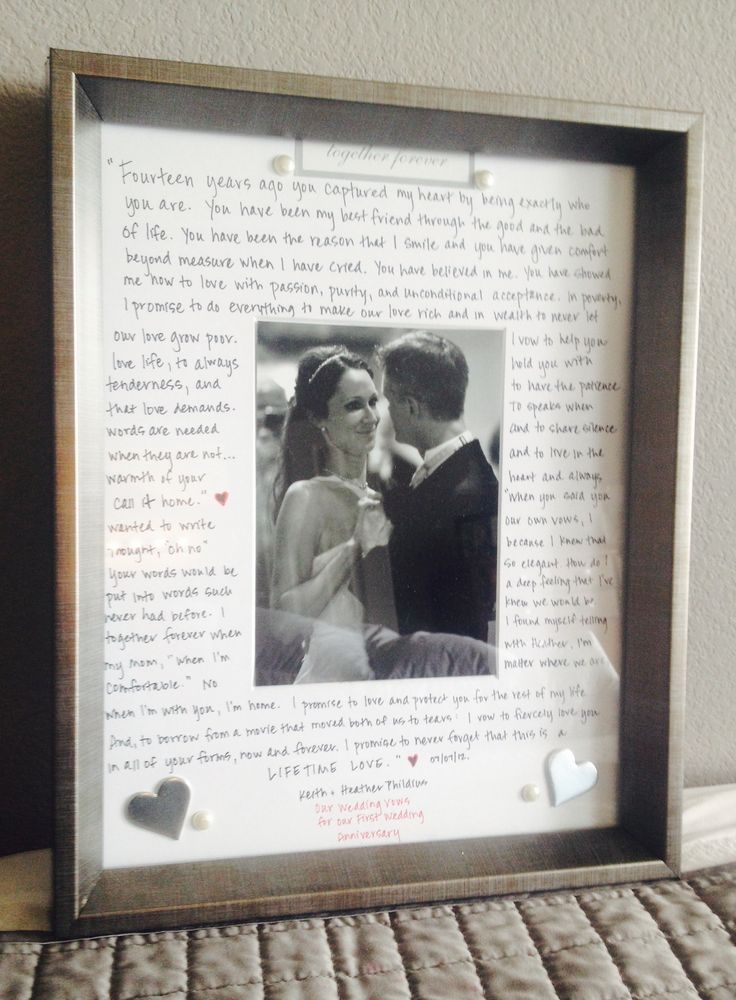 together forever
"Fourteen years ago you captured my heart by being exactly who
you are. You have been my best friend through the good and the bad
of life. You have been the reason that I smile and you have given comfort
beyond measure when I have cried. You have believed in me. You have showed
me how to love with passion, purity, and unconditional acceptance. In poverty,
I promise to do everything to make our love rich and in wealth to never let
our love grow poor. I vow to help you
love life, to always hold you with
tenderness, and to have the patience
that love demands. To speaks when
words are needed and to share silence
when they are not... and to live in the
warmth of your heart and always
call it home." ♥ "When you said you
wanted to write our own vows, I
thought, "oh no" because I knew that
your words would be so elegant. How do I
put into words such a deep feeling that I've
never had before. I knew we would be
together forever when I found myself telling
my mom, "when I'm with Heather, I'm
comfortable." No matter where we are
when I'm with you, I'm home. I promise to love and protect you for the rest of my life
And, to borrow from a movie that moved both of us to tears: I vow to fiercely love you
in all of your forms, now and forever. I promise to never forget that this is a
LIFETIME LOVE." ♥ 07/07/12.
Keith + Heather
Our Wedding Vows
for our First Wedding
Anniversary